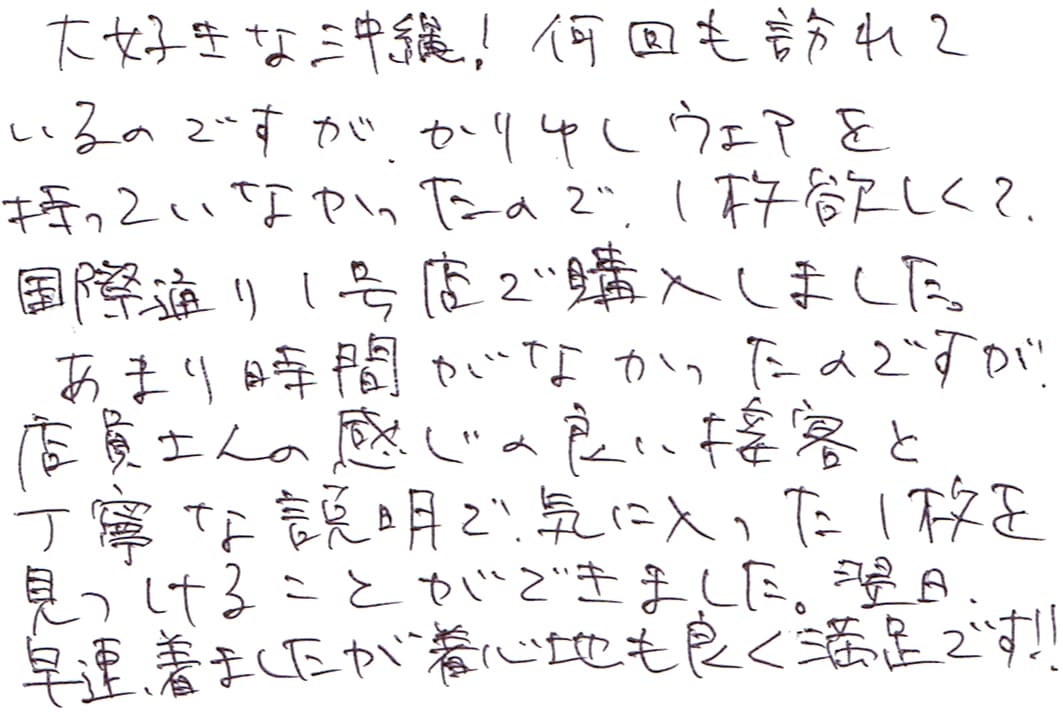 大好きな沖縄!何回も訪れて
いるのですが、かりゆしウェアを
持っていなかったので、1枚欲しくて、
国際通り1号店で購入しました。
あまり時間がなかったのですが、
店員さんの感じの良い接客と
丁寧な説明で、気に入った1枚を
見つけることができました。翌日、
早速、着ましたが着心地も良く満足です!!